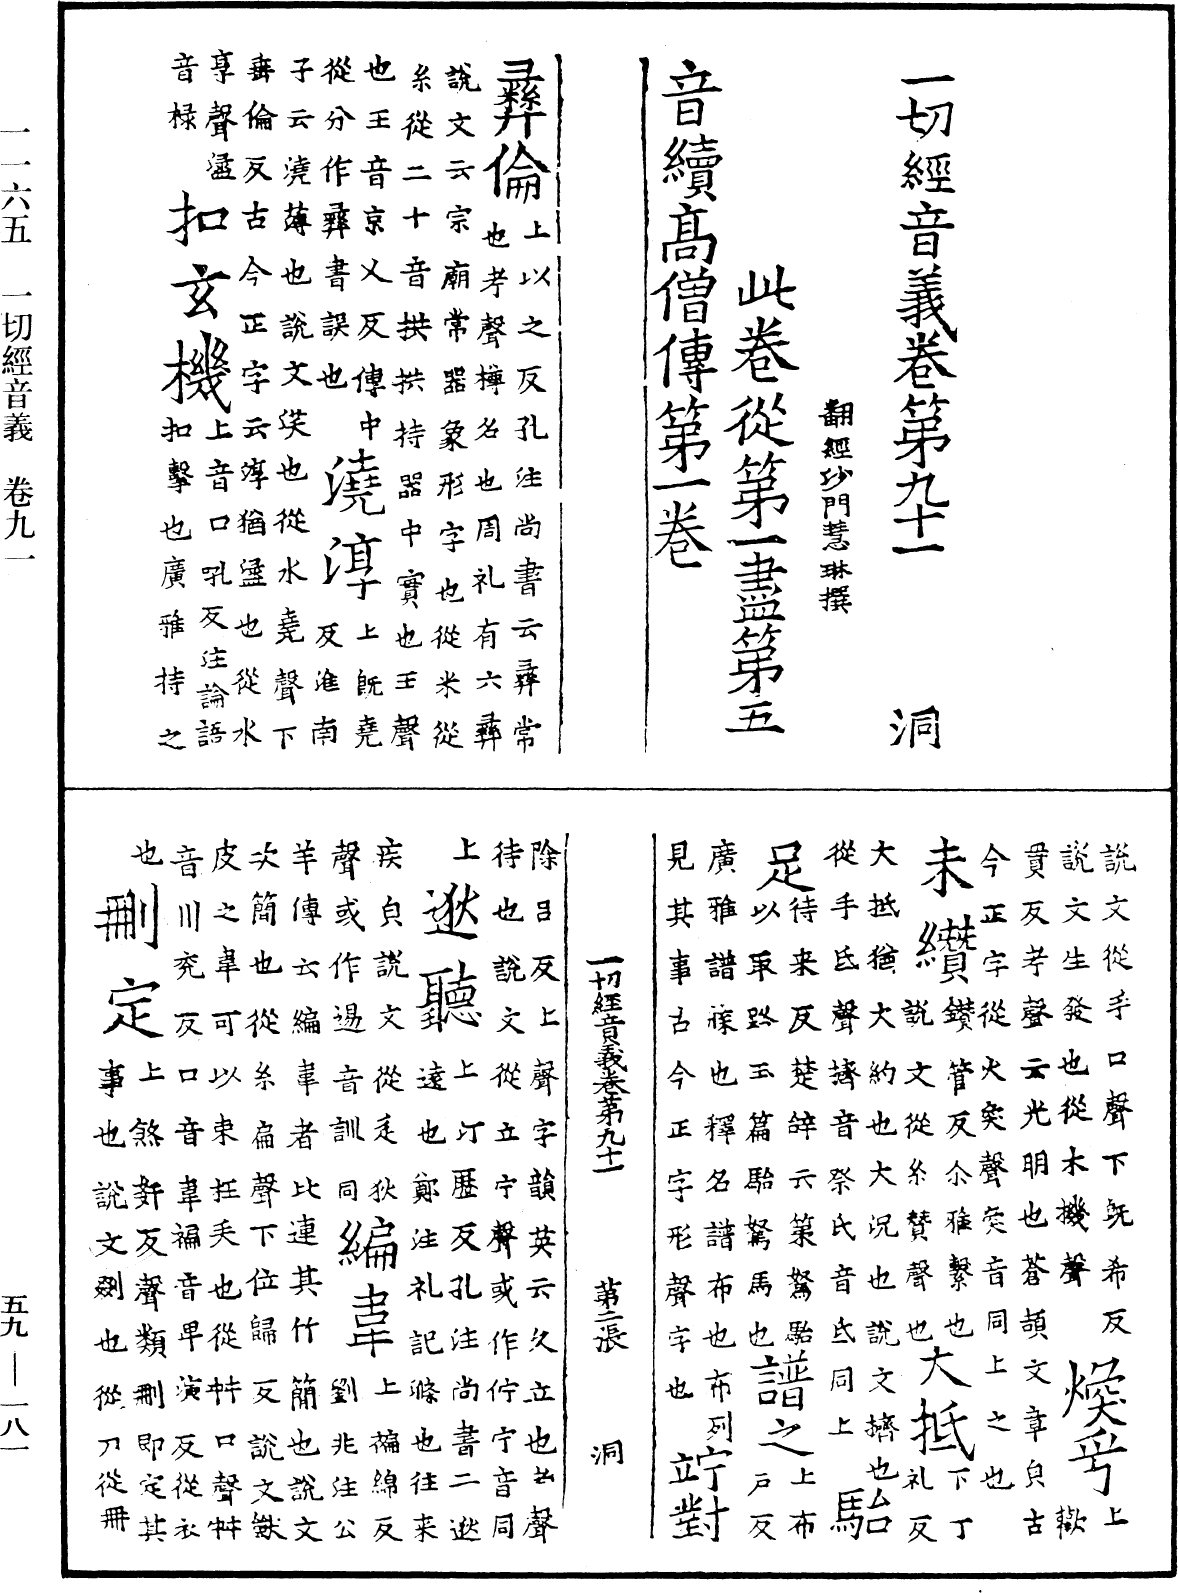 一切經音義卷第九十一 洞
翻經沙門慧琳撰
此卷從第一盡第五
音續高僧傳第一卷
彝倫上以之反孔注尚書云彝常
也考聲樽名也周礼有六彝
說文云宗廟常器象形字也從米從
糸從二十音拱拱持器中實也王聲
也王音京乂反傳中澆淳上皎堯
從分作彞書誤也反淮南
子云澆薄也說文澆也從水堯聲下
垂倫反古今正字云淳猶濹也從水
享聲濹扣玄機上音口吼反注論語
音椂扣擊也廣雅持之
說文從手口聲下旣希反煥乎上
說文生發也從木機聲歡
貫反考聲云光明也蒼頡文章皃古
今正字從火奐聲奐音同上之也
未纘鑽管反尒雅繫也大抵下丁
說文從糸贊聲也礼反
大抵猶大約也大況也說文擠也
從手氐聲擠音祭氏音氐同上駘
足待来反楚辞云策駑駘譜之上布
以取路玉篇駘駑馬也戶反
廣雅譜襍也釋名譜布也布列
見其事古今正字形聲字也竚對
一切經音義卷第九十一 第二張 洞
除呂反上聲字韻英云久立也去聲
待也說文從立宁聲或作佇宁音同
上逖聽上汀歷反孔注尚書云逖
遠也鄭注礼記滌也往来
疾皃說文從辵狄編韋上褊綿反
聲或作逷音訓同劉兆注公
羊傳云編韋者比連其竹簡也說文
次簡也從糸扁聲下位歸反說文獸
皮之韋可以束枉戾也從舛口聲舛
音川兖反口音韋褊音早演反從衣
也刪定上煞姧反聲類刪即定其
事也說文剟也從刀從冊
一一六五 一切經音義 卷九一
五九—一八一